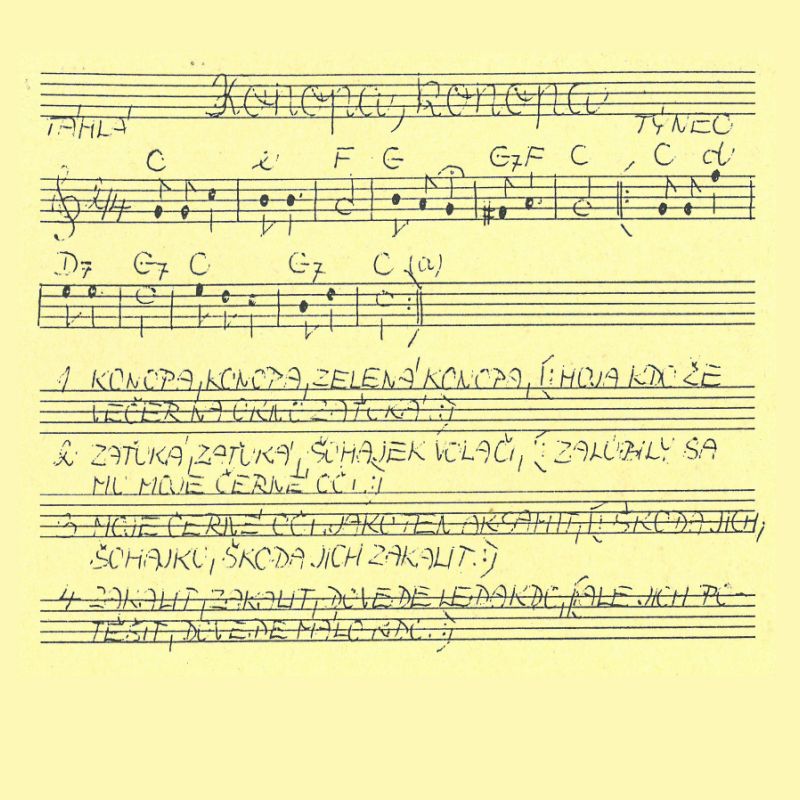 Konopa, konopa
TÁHLÁ TÝNEC
C e F G G7 F C C d
2/4
D7 G7 C G7 C (a)
1 KONOPA, KONOPA, ZELENÁ KONOPA, [: MOJA KDO ŽE
VEČER NA OKNO ZAŤUKÁ. :]
2 ZAŤUKÁ, ZAŤUKÁ, ŠOHAJEK VOLAČÍ, [: ZALÚBILY SA
MU MOJE ČERNÉ OČI. :]
3 MOJE ČERNÉ OČI JAKO TEN AKSAMIT, [: ŠKODA JICH,
ŠOHAJKU, ŠKODA JICH ZAKALIT. :]
4 ZAKALIT, ZAKALIT, DOVEDE LEDAKDO, [: ALE JICH PO-
TĚŠIT, DOVEDE MÁLO KDO. :]